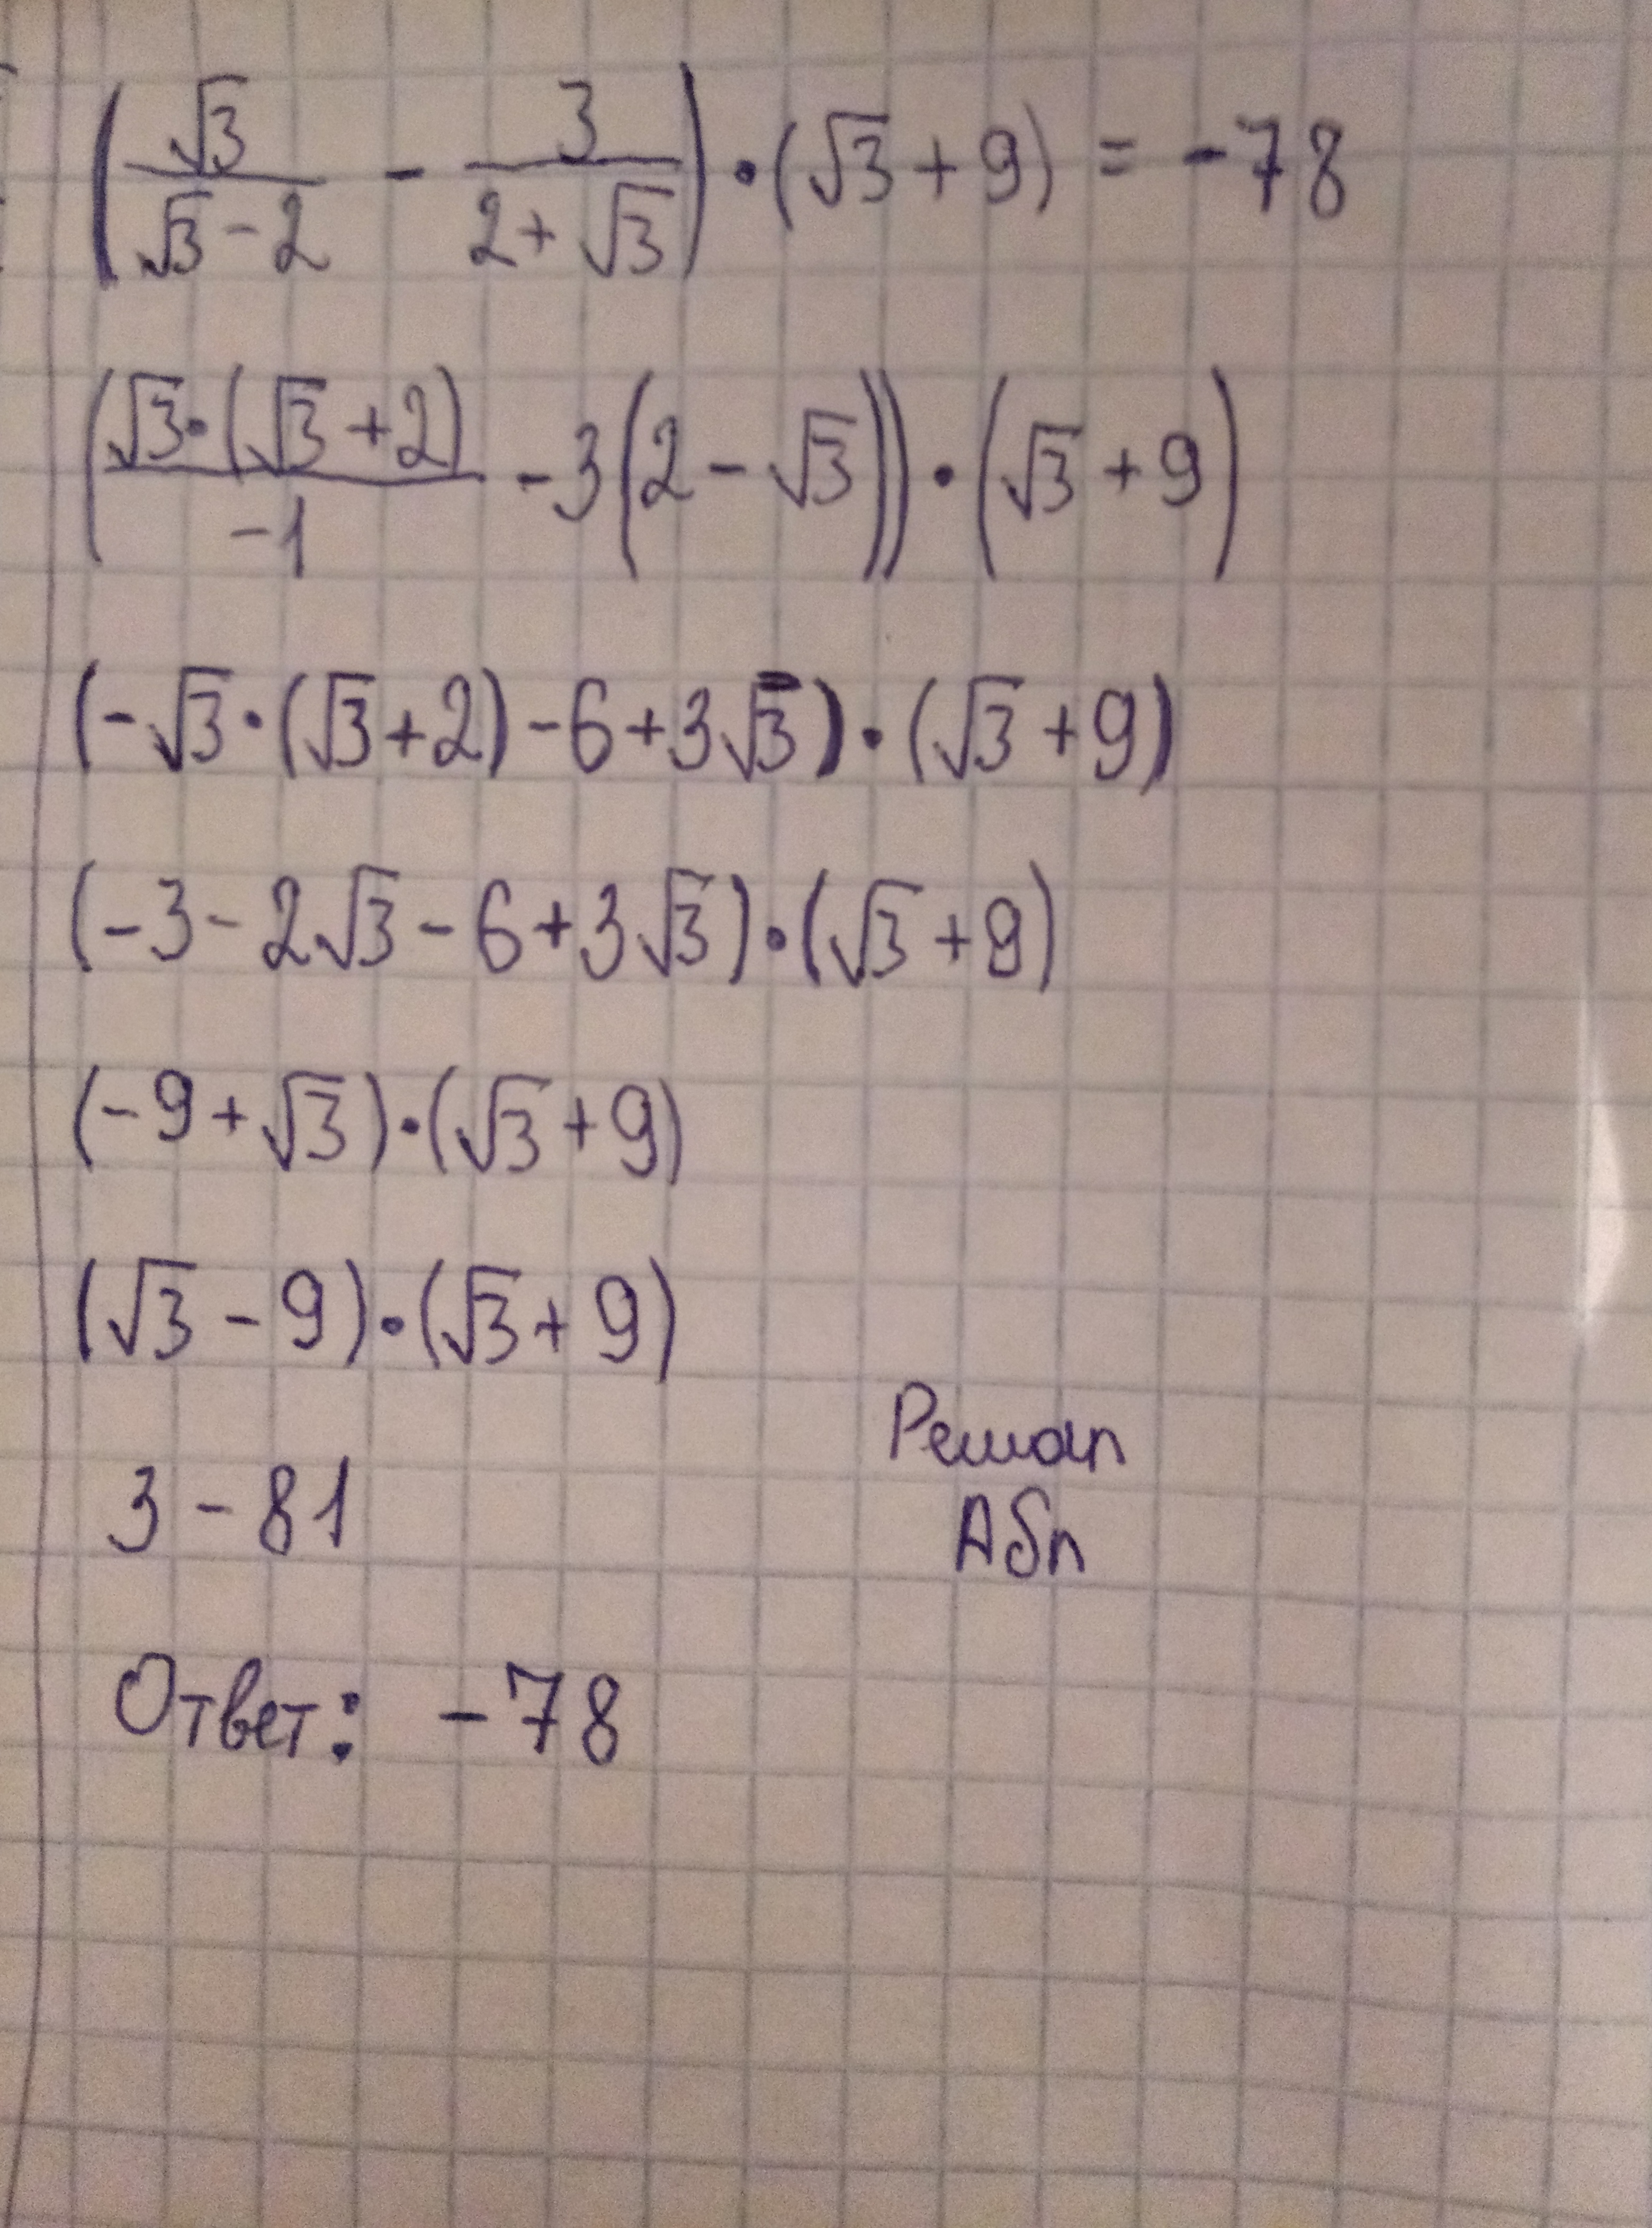 (√3/(√3-2) - 3/(2+√3))•(√3+9) = -78
(√3•(√3+2)/-1 -3(2-√3))•(√3+9)
(-√3•(√3+2)-6+3√3)•(√3+9)
(-3-2√3-6+3√3)•(√3+9)
(-9+√3)•(√3+9)
(√3-9)•(√3+9)
3-81
Решал
Абл
Ответ: -78